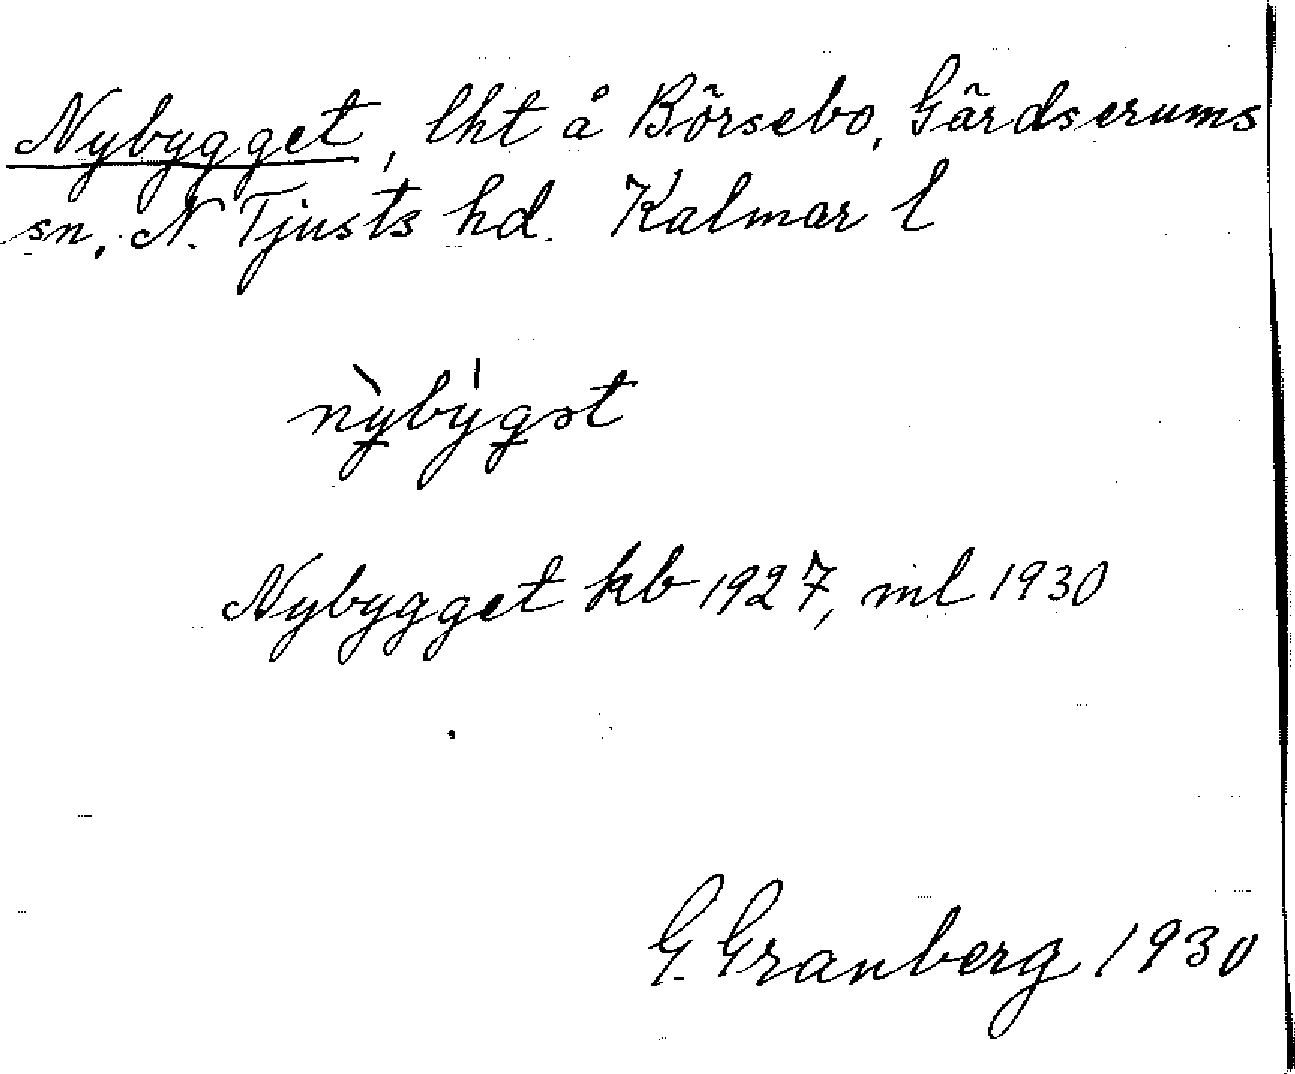 Nybygget, lht å Börsebo, Gärdserums
sn, N. Tjusts hd. Kalmar l
nỳbýgət
Nybygget kb 1927, ml 1930
G. Granberg 1930